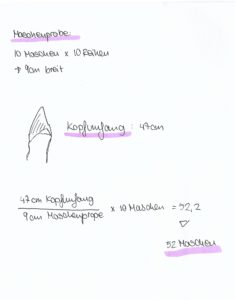 Maschenprobe:
10 Maschen x 10 Reihen
→ 9cm breit
Kopfumfang : 47cm
47cm Kopfumfang
9cm Maschenprobe
x 10 Maschen = 52,2
52 Maschen